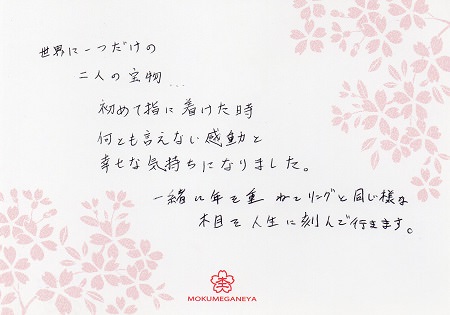 世界に一つだけの
二人の宝物…
初めて指に着けた時
何とも言えない感動と
幸せな気持ちになりました。
一緒に年を重ねてリングと同じ様な
木目を人生に刻んで行きます。
MOKUMEGANEYA